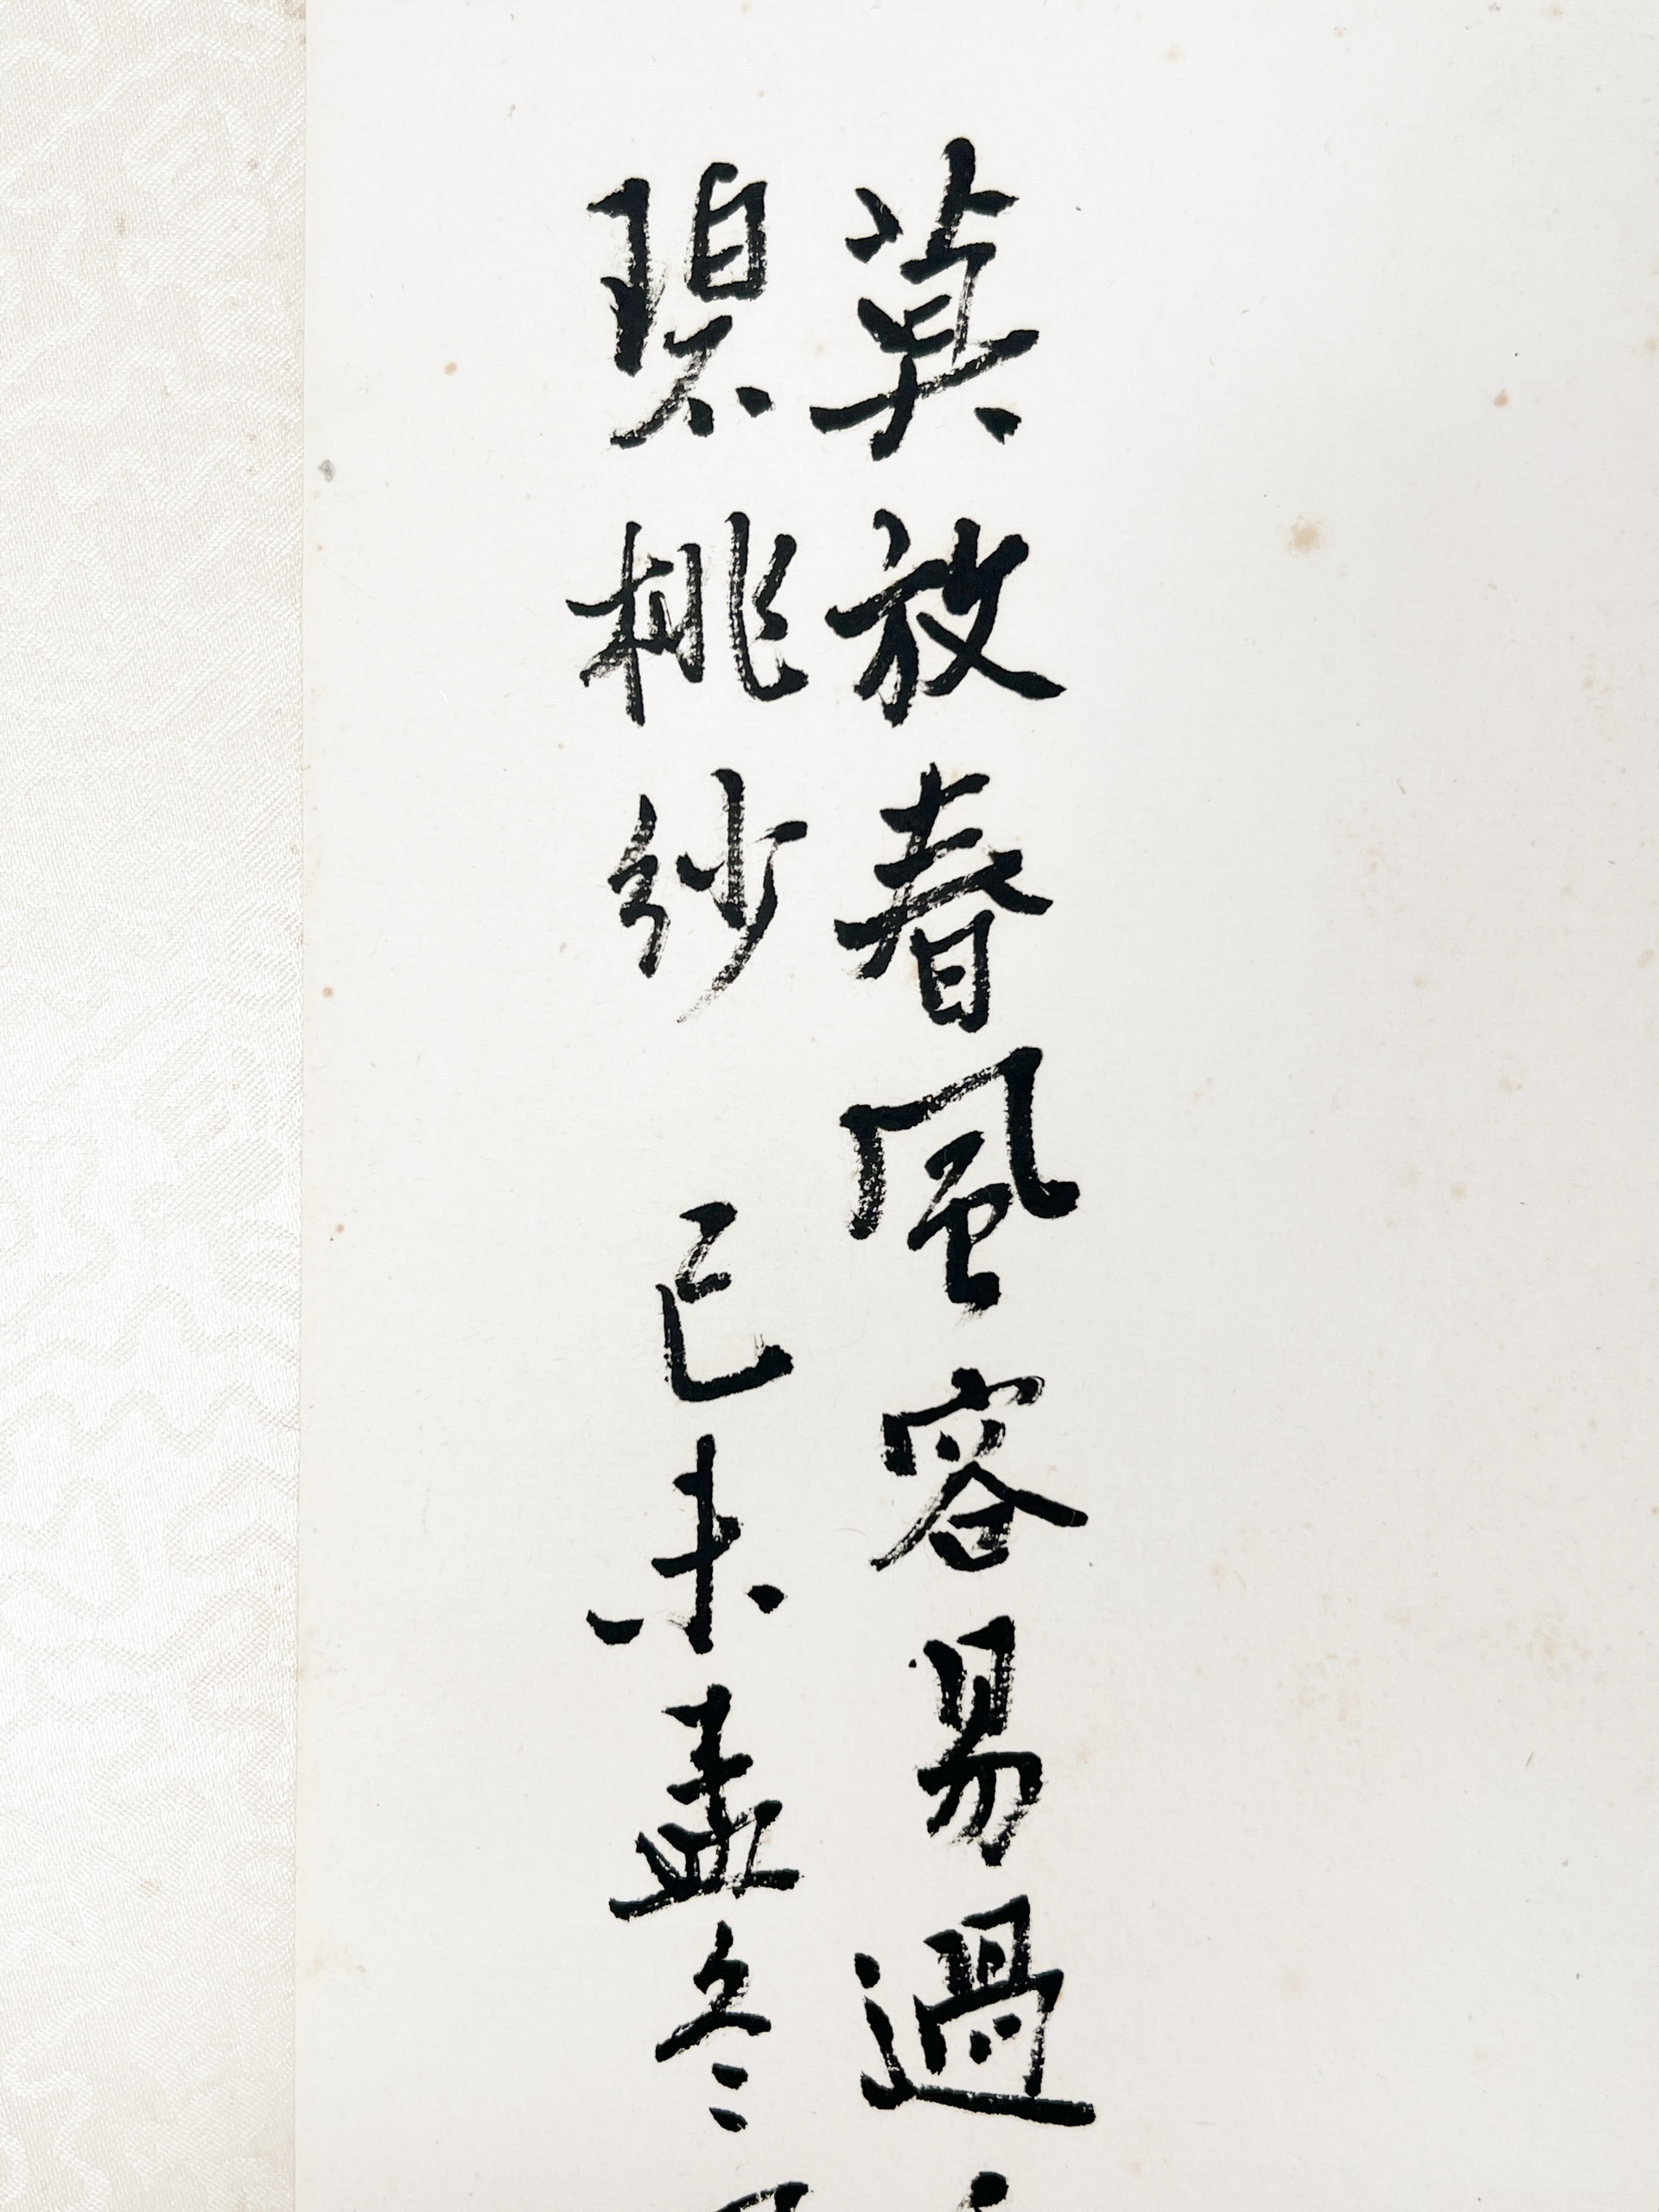 莫放春風容易過
碧桃紗 己未孟冬